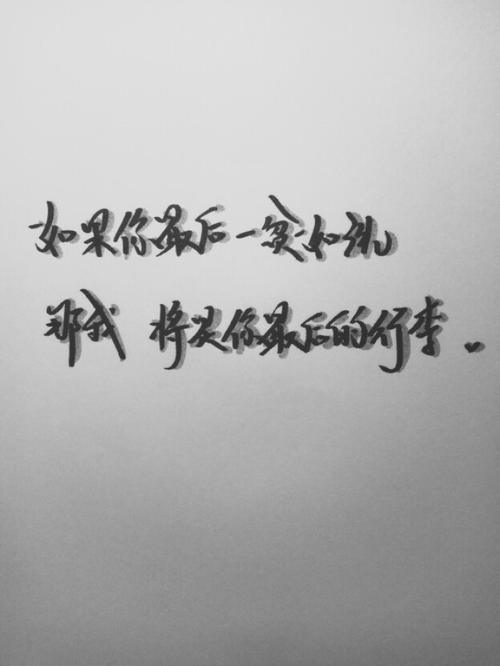 如果你最后一贫如洗
那我 将是你最后的行李。